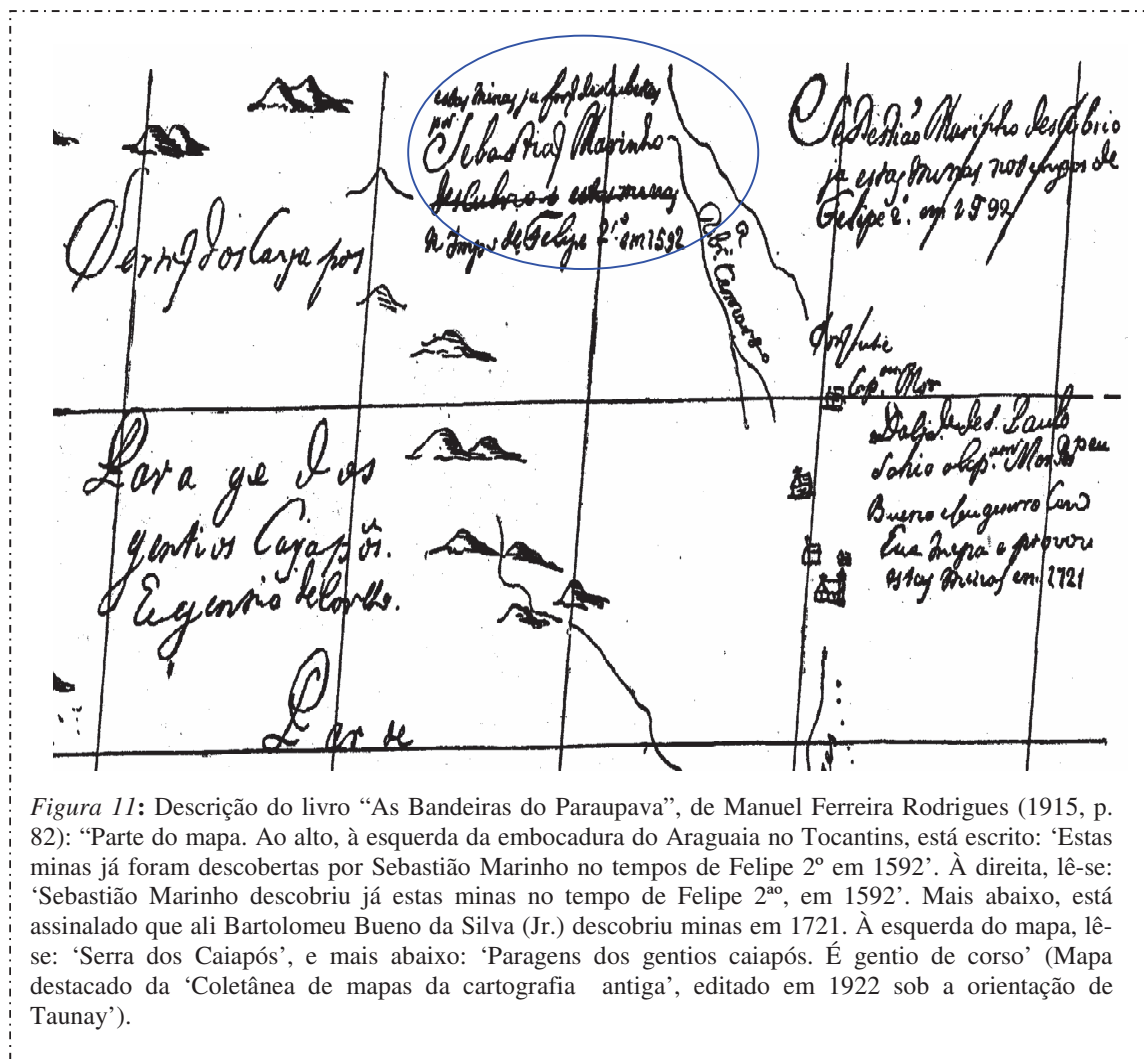 estas minas ja forão descubertas
por
Sebastiaõ Marinho
descubrio estas minas
Felipe 2º em 1592
Sebastião Marinho descubrio
ja estas minas nos tempos de
Felipe 2º em 1592
Serra dos Cayapos
Cap.am Mor
de S. Paulo
Bueno
estas minas em 1721
gentios Cayapôs.
E gentio de Corso.
Figura 11: Descrição do livro “As Bandeiras do Paraupava”, de Manuel Ferreira Rodrigues (1915, p.
82): “Parte do mapa. Ao alto, à esquerda da embocadura do Araguaia no Tocantins, está escrito: ‘Estas
minas já foram descobertas por Sebastião Marinho no tempos de Felipe 2º em 1592’. À direita, lê-se:
‘Sebastião Marinho descobriu já estas minas no tempo de Felipe 2ªº, em 1592’. Mais abaixo, está
assinalado que ali Bartolomeu Bueno da Silva (Jr.) descobriu minas em 1721. À esquerda do mapa, lê-
se: ‘Serra dos Caiapós’, e mais abaixo: ‘Paragens dos gentios caiapós. É gentio de corso’ (Mapa
destacado da ‘Coletânea de mapas da cartografia antiga’, editado em 1922 sob a orientação de
Taunay’).